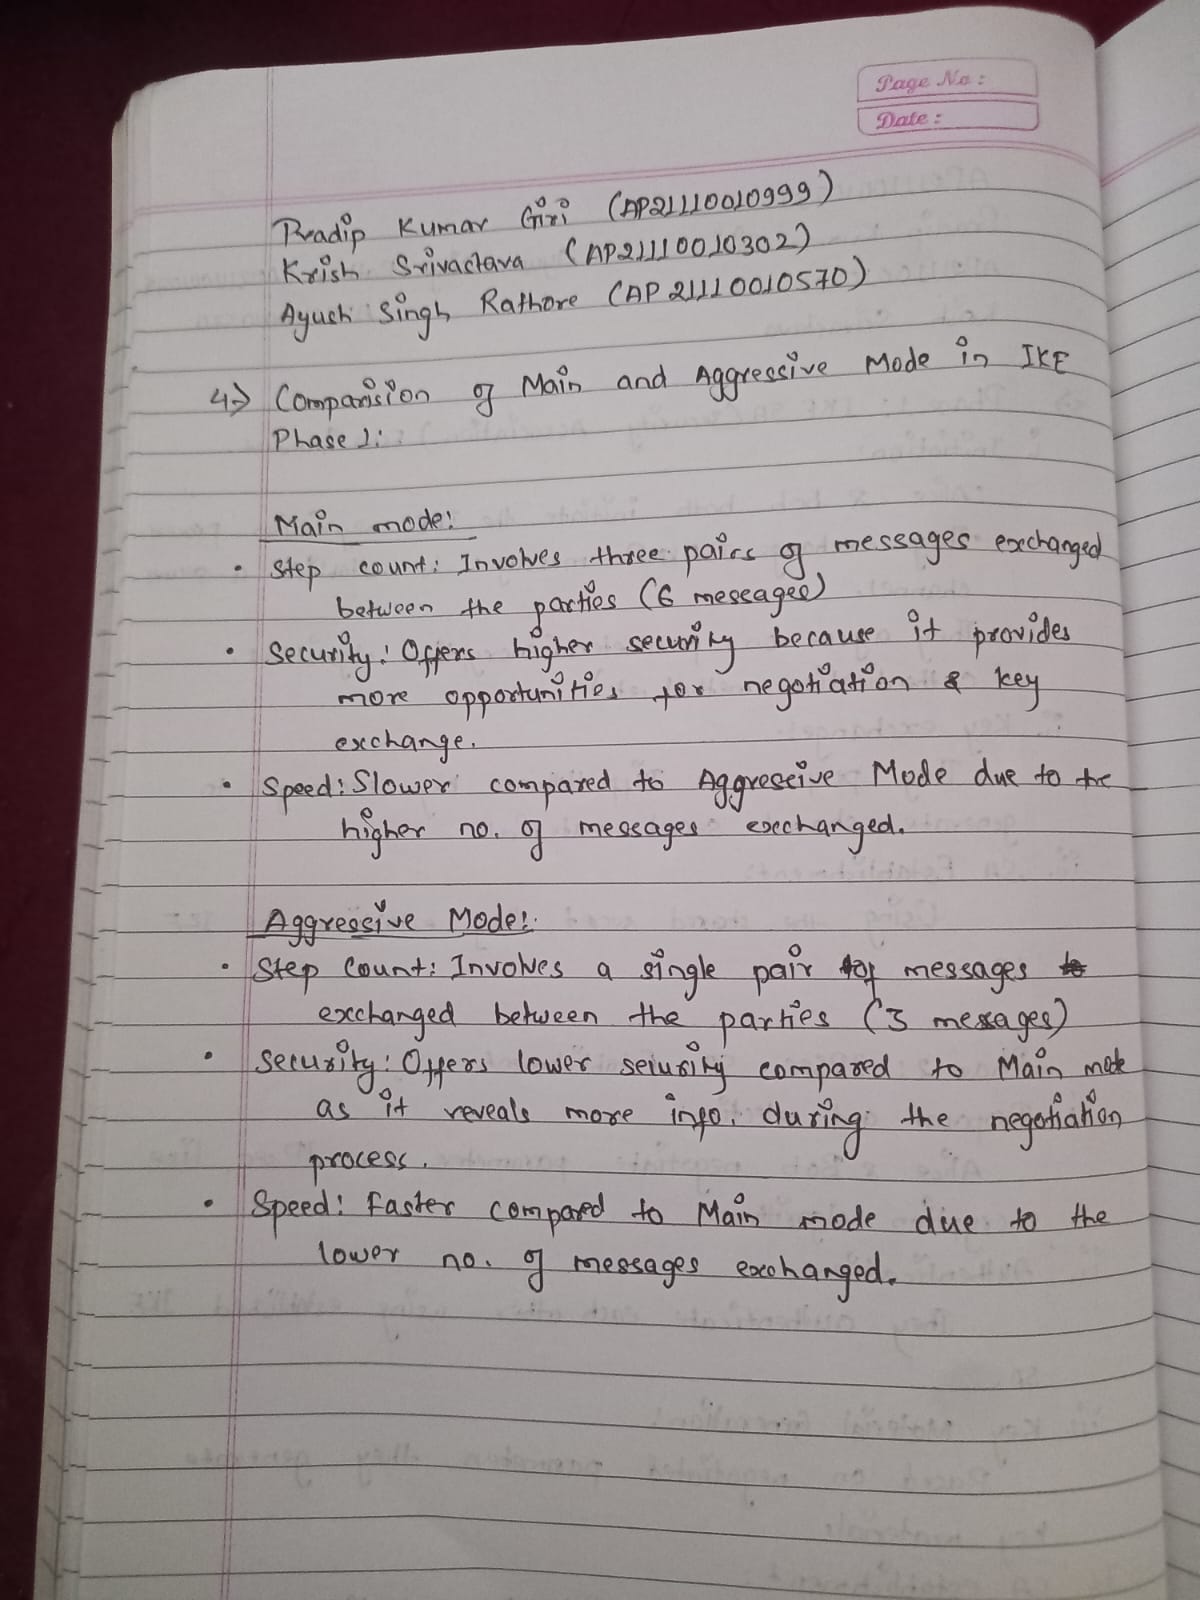 Page No :
Date :
Pradip Kumar Giri (AP21110010999)
Krish Srivastava (AP21110010302)
Ayush Singh Rathore (AP21110010570)
4) Comparision of Main and Aggressive Mode in IKE
Phase 1:
Main mode:
• Step count: Involves three pairs of messages exchanged
between the parties (6 messages)
• Security: Offers higher security because it provides
more opportunities for negotiation & key
exchange.
• Speed: Slower compared to Aggressive Mode due to the
higher no. of messages exchanged.
Aggressive Mode:
• Step Count: Involves a single pair of messages
exchanged between the parties (3 messages)
• Security: Offers lower security compared to Main mode
as it reveals more info. during the negotiation
process.
• Speed: Faster compared to Main mode due to the
lower no. of messages exchanged.